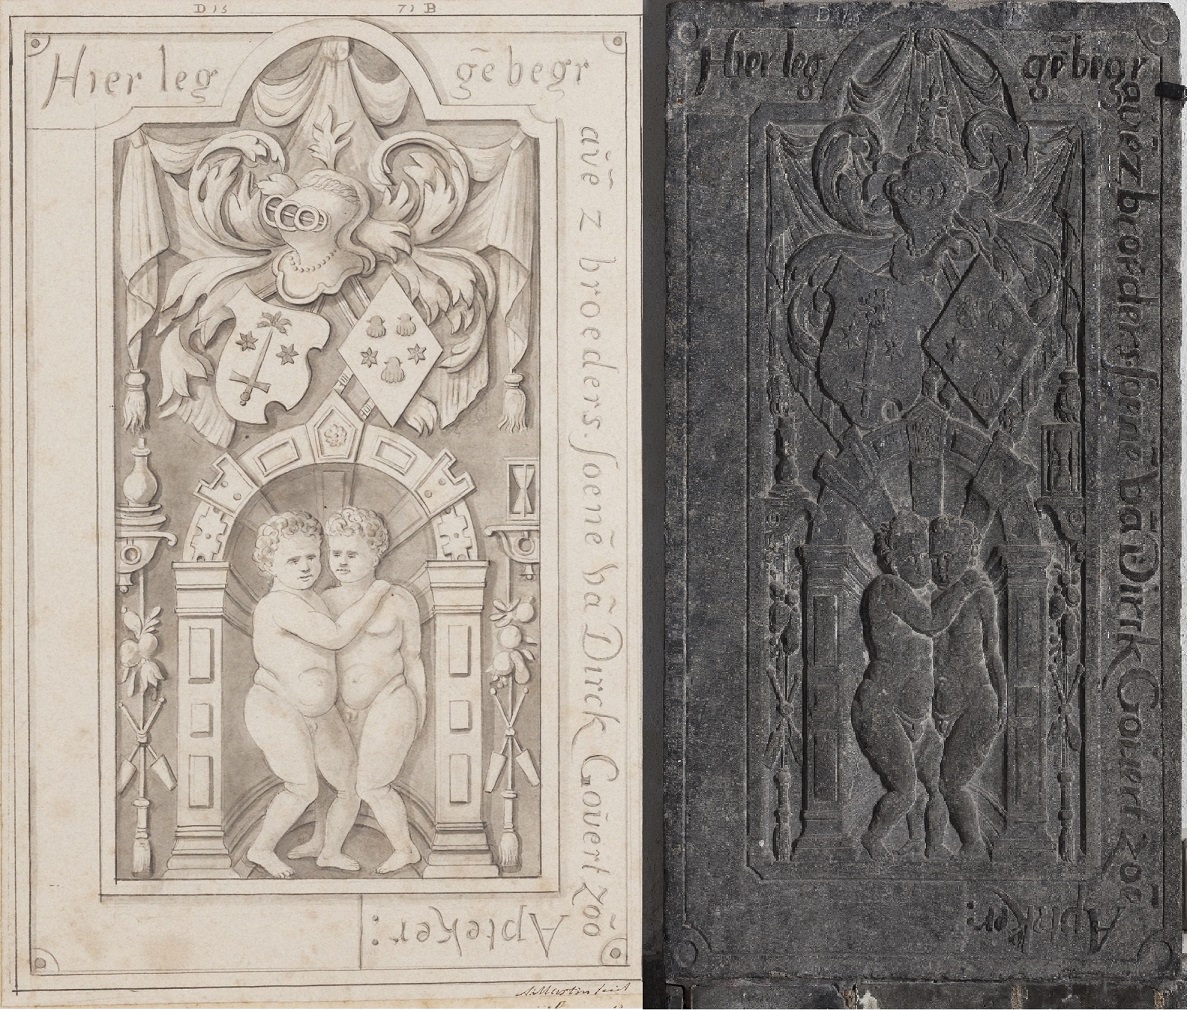 D 15 71 B
Hier leg gēbegr
avē z broeders. soenē vā Dirck Goūert zōō
Apteker:
Hier leg gēbegr
avē z broeders soenē vā Dirck Goivert zōē
Apteker: